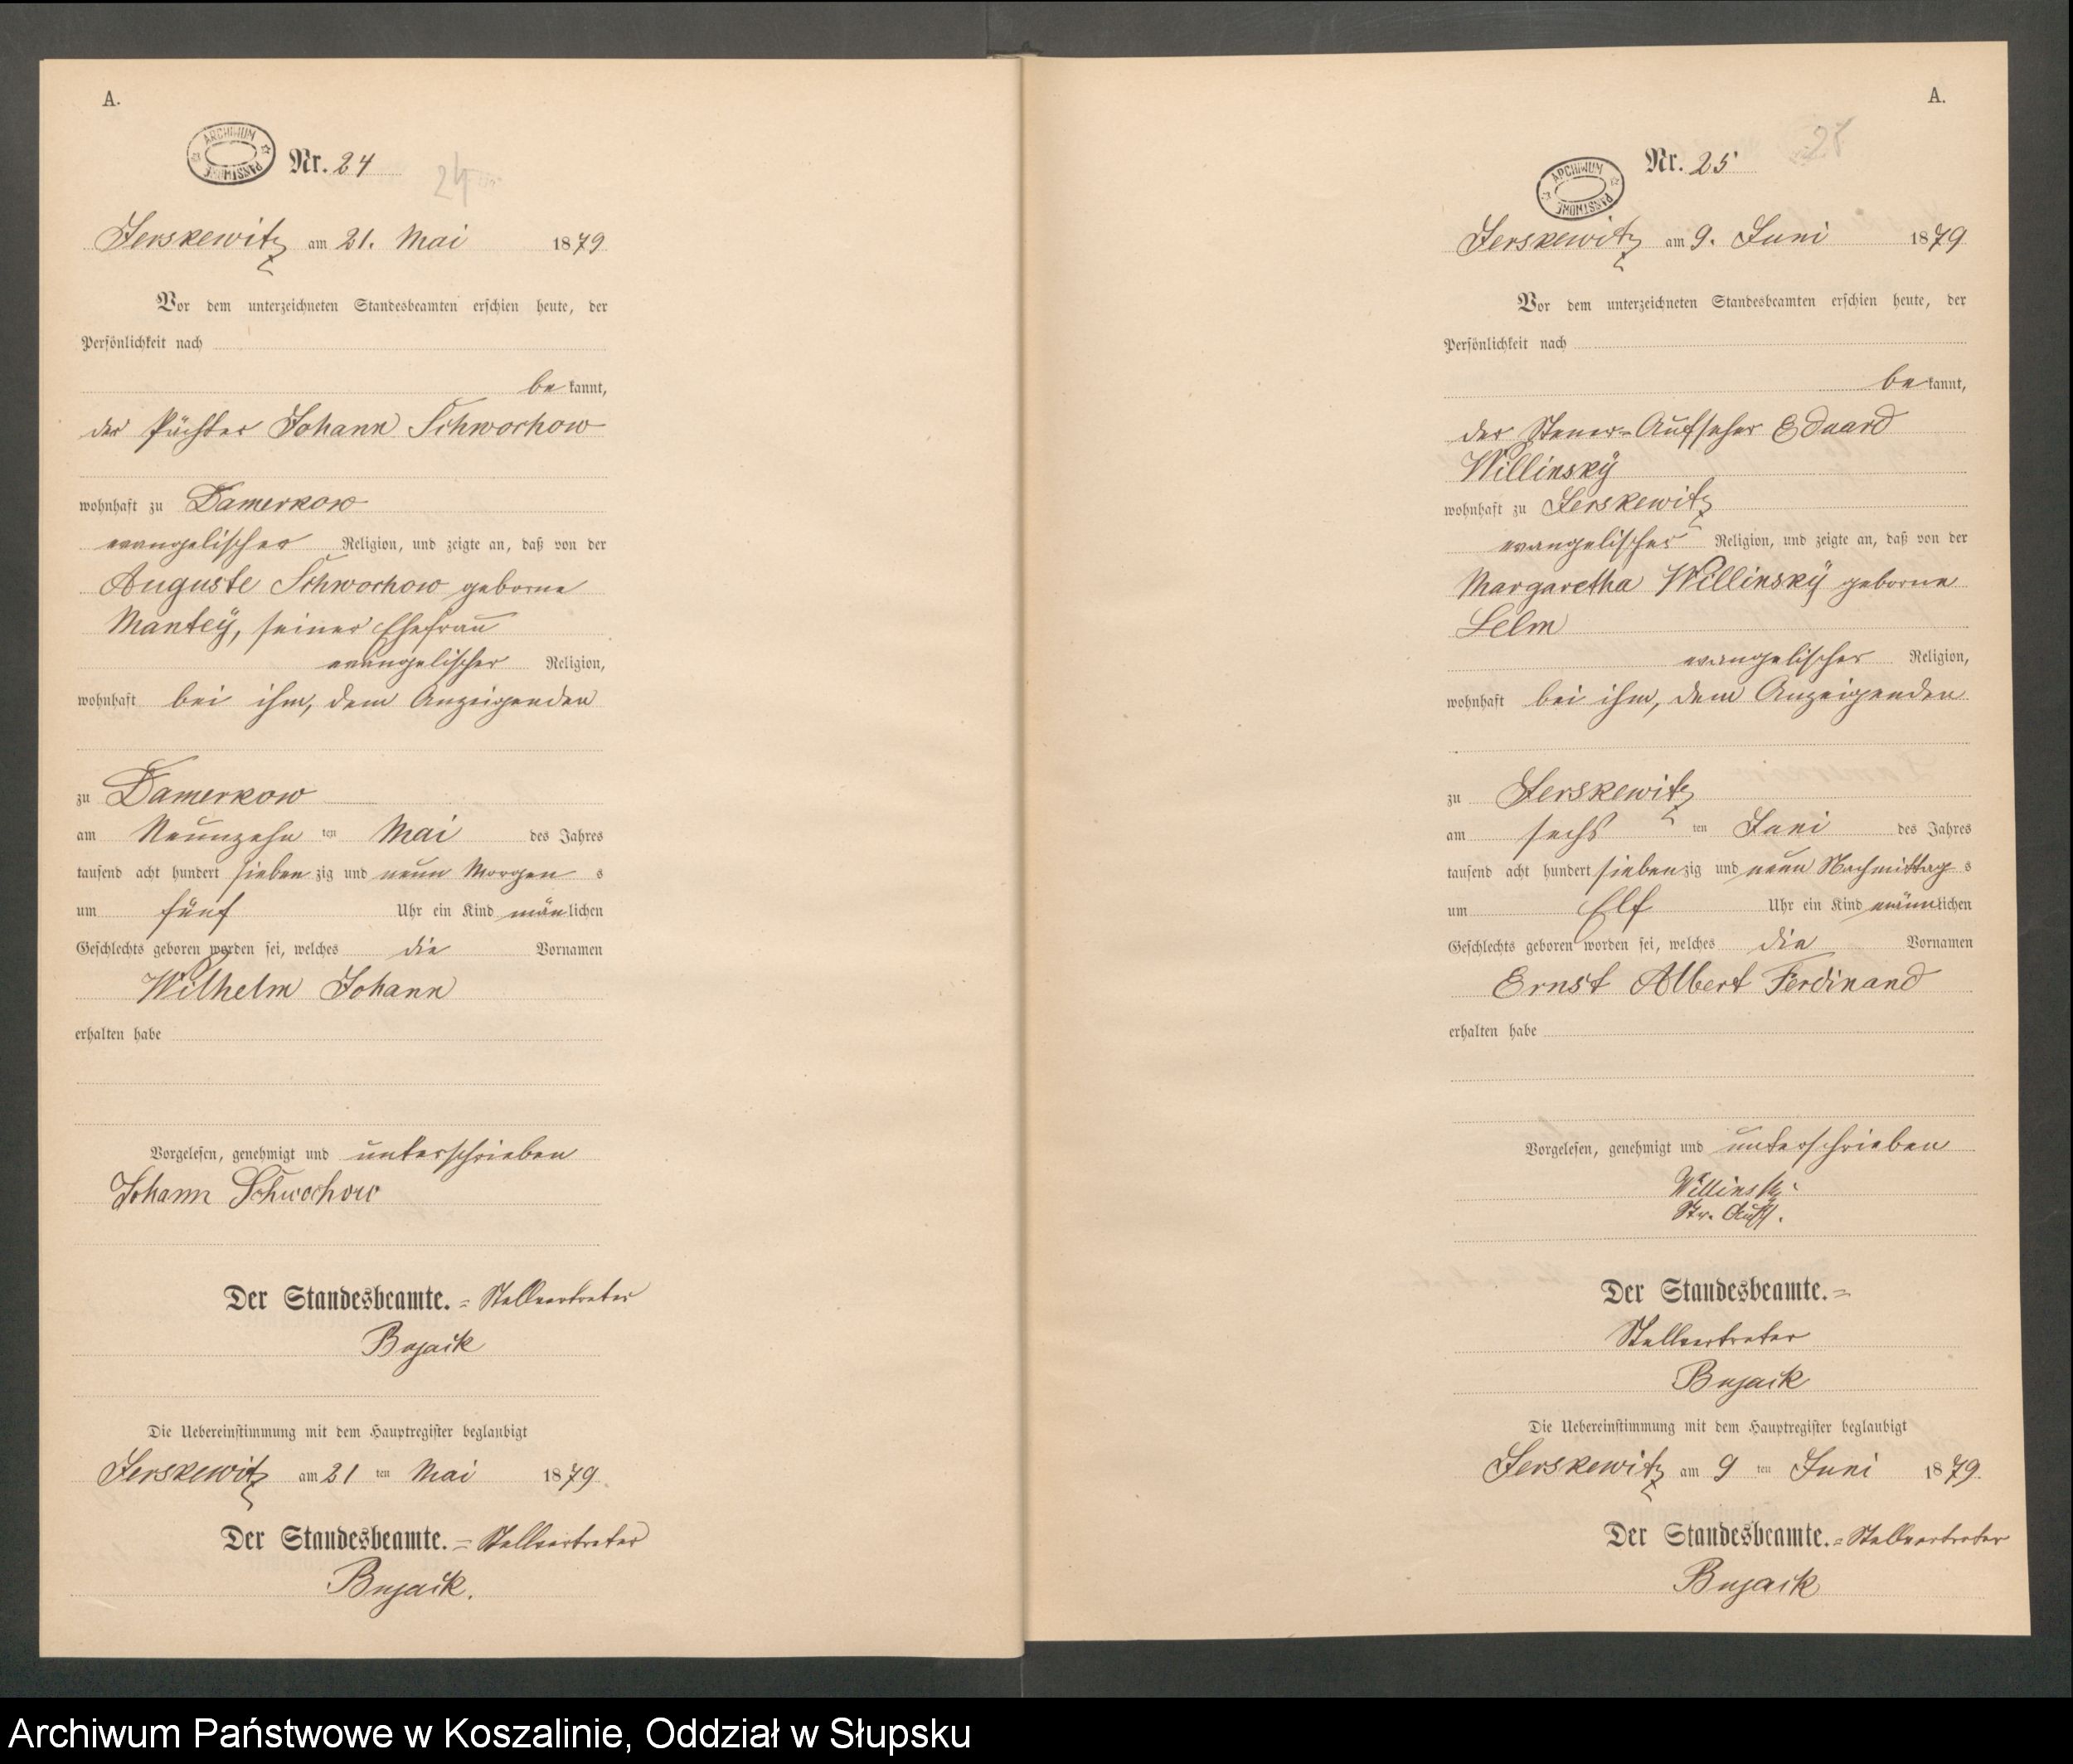 A.
ARCHIWUM PAŃSTWOWE
Nr. 24
24
Jerskewitz am 21. Mai 1879
Vor dem unterzeichneten Standesbeamten erschien heute, der
Persönlichkeit nach
bekannt,
der Pächter Johann Schwochow
wohnhaft zu Damerkow
evangelischer Religion, und zeigte an, daß von der
Auguste Schwochow geborne
Manteÿ, seiner Ehefrau
evangelischer Religion,
wohnhaft bei ihm, dem Anzeigenden
zu Damerkow
am Neunzehn ten Mai des Jahres
tausend acht hundert siebenzig und neun Morgen s
um fünf Uhr ein Kind mänlichen
Geschlechts geboren worden sei, welches die Vornamen
Wilhelm Johann
erhalten habe
Vorgelesen, genehmigt und unterschrieben
Johann Schwochow
Der Standesbeamte. = Stellvertreter
Bujack
Die Uebereinstimmung mit dem Hauptregister beglaubigt
Jerskewitz am 21 ten Mai 1879.
Der Standesbeamte. = Stellvertreter
Bujack.
A.
25
ARCHIWUM PAŃSTWOWE
Nr. 25
Jerskewitz am 9. Juni 1879
Vor dem unterzeichneten Standesbeamten erschien heute, der
Persönlichkeit nach
bekannt,
der Steuer-Aufseher Eduard
Willinskÿ
wohnhaft zu Jerskewitz
evangelischer Religion, und zeigte an, daß von der
Margaretha Willinskÿ geborne
Selm
evangelischer Religion,
wohnhaft bei ihm, dem Anzeigenden
zu Jerskewitz
am sechs ten Juni des Jahres
tausend acht hundert siebenzig und neun Nachmittag s
um Elf Uhr ein Kind männlichen
Geschlechts geboren worden sei, welches die Vornamen
Ernst Albert Ferdinand
erhalten habe
Vorgelesen, genehmigt und unterschrieben
Willinski
Str. Auff.
Der Standesbeamte. =
Stellvertreter
Bujack
Die Uebereinstimmung mit dem Hauptregister beglaubigt
Jerskewitz am 9 ten Juni 1879.
Der Standesbeamte. = Stellvertreter
Bujack
Archiwum Państwowe w Koszalinie, Oddział w Słupsku